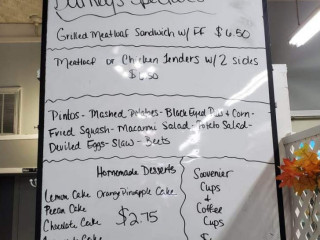 Today's Specials
Grilled Meatloaf Sandwich w/ FF $6.50
Meatloaf or Chicken Tenders w/ 2 sides
Pintos - Mashed Potatoes - Black Eyed Peas - Corn -
Fried Squash - Macaroni Salad - Potato Salad -
Deviled Eggs - Slaw - Beets
Homemade Desserts
Lemon Cake Orange Pineapple Cake
Pecan Cake
Chocolate Cake $2.75
Souvenier
Cups
&
Coffee
Cups
$